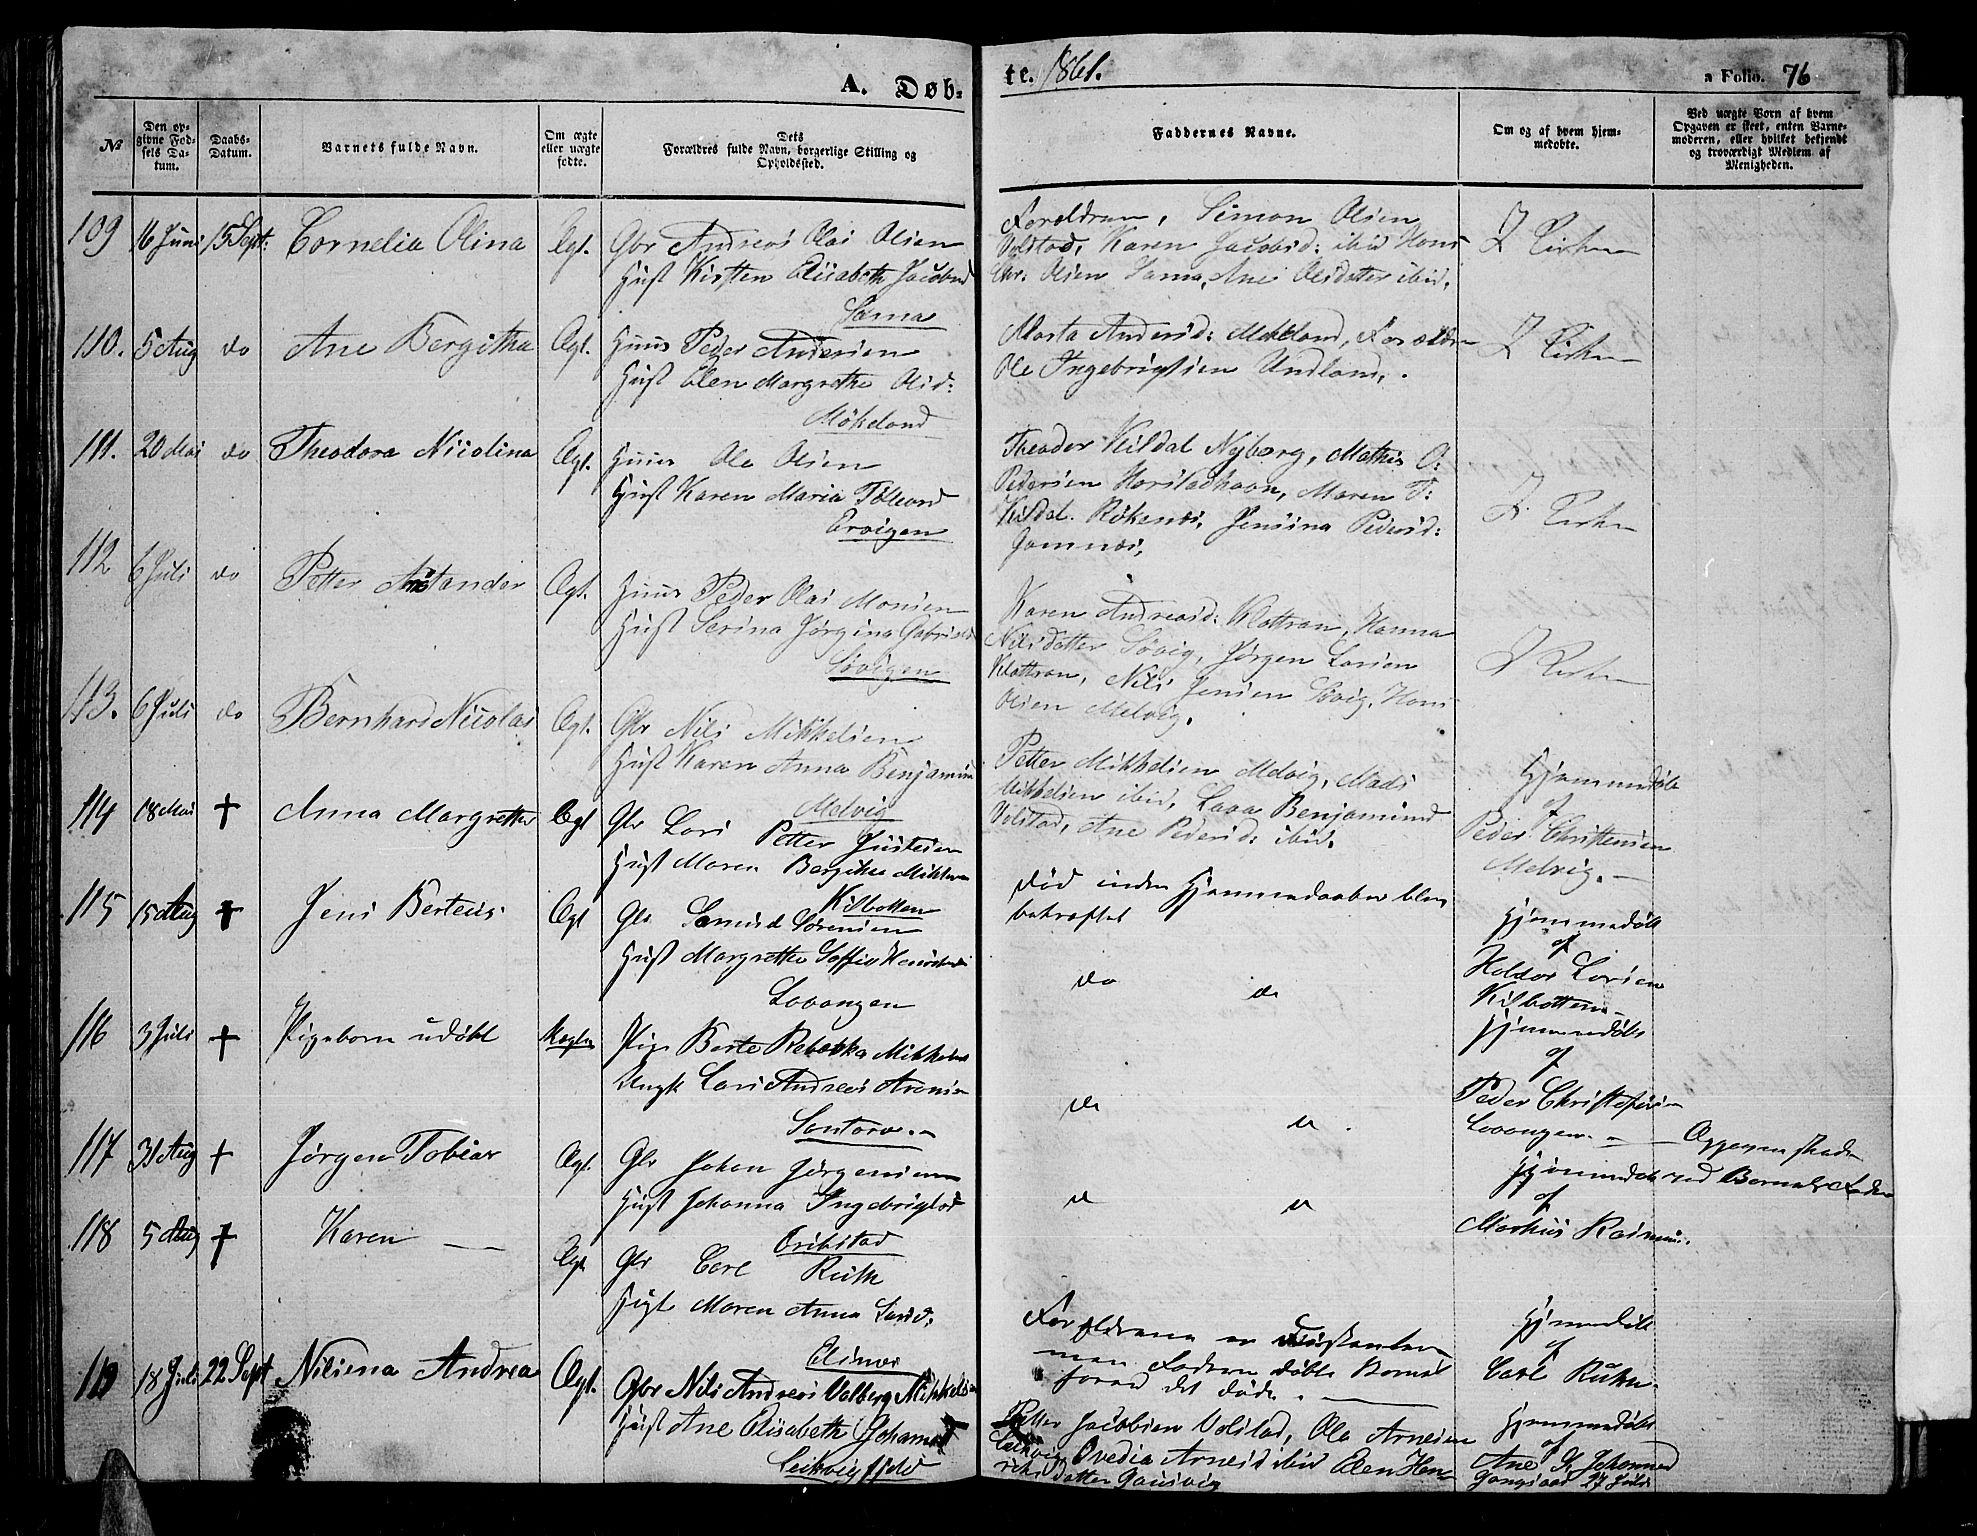 A. Døb-
te. 1861.
a Folio. 76
№
Den op-
givne Fød-
sels Da-
tum.
Daabs-
Datum.
Barnets fulde Navn.
Om ægte
eller uægte
fødte.
Dets
Forældres fulde Navn, borgerlige Stilling og
Opholdssted.
Faddernes Navne.
Om og af hvem hjem-
medøbte.
Ved uægte Born af hvem
Opgaven er skeet, enten Barne-
moderen, eller hvilket bekjendt
og troværdigt Medlem af
Menigheden.
109 16 Juni 15 Sept. Cornelia Olina Ægt. Gbr Andreas Olai Olsen
Hust Kirsten Elisabeth Jacobsd
Sama
Forældrene, Simon Olsen
Volstad, Karen Jacobsd: ibid Hans
Chr. Olsen Sama, Ane Olsdatter ibid.
I Kirken
110. 5 Aug do Ane Bergitha Ægt. Huus Peder Andersen
Hust Elen Margrethe Olsd:
Møkeland
Marta Andersd: Møkland, Forældre
Ole Ingebrigtsen Undland.
I Kirken
111. 20 Mai do Theodora Nicolina Ægt. Huus Ole Olsen
Hust Karen Maria Tollevsd
Ervigen
Theodor Kildal Nyborg, Mathis O:
Pedersen Harstadhavn, Maren T:
Kildal Røkenes, Jensina Pedersd:
I Kirken
112 6 Juli do Petter Ægt. Huus Peder Olai Monsen
Hust Serina Jørgina Gabrielsd
Søvigen
Karen Andreasd: Klattran, Hanna
Nilsdatter Søvig, Jørgen Larsen
Klattran, Nils Jensen Søvig, Hans
Olsen Melvig.
I Kirken
113. 6 Juli do Bernhard Nicolai Ægt. Gbr Nils Mikkelsen
Hust Karen Anna Benjamins
Melvig
Petter Mikkelsen Melvig, Mads
Mikkelsen ibid, Lava Benjaminsd
Volstad, Ane Pedersd: ibid.
Hjemmedøbt
af
Peder Christensen
Melvig.
114 18 Mai † Anna Margrethe Ægt Gbr Lars Petter Justesen
Hust Maren Bergitha Mikkels
Kilbotten
Død inden Hjemmedaaben blev
bekræftet
Hjemmedøbt
af
Heldor Larsen
Kilbotten
115 15 Aug † Jens Berteus Ægt Gbr Samuel Sørensen
Hust Margrethe Soffie
Lavangen
do do
Hjemmedøbt
af
Peder Christophersen
Lavangen.
116 3 Juli † Pigebarn udøbt Uægte Pige Berte Rebekka Mikkelsd
Ungk Lars Andreas Aronsen
Santorv.
do do.
117 31 Aug † Jørgen Tobias Ægt. Gbr Johan Jørgensen
Hust Johanna Ingebrigtsd
do do
Hjemmedøbt
af
Markus Rasmus.
118 5 Aug † Karen Ægt Gbr Carl Ruth
Hust Maren Anna Larsd:
Elsnes
Forældrene er
men Faderen døbte Barnet
forend det døde.
Hjemmedøbt
af
Carl Ruth.
119 18 Juli 22 Sept Nilsina Andrea Ægt. Gbr Nils Andreas Volberg Mikkelsen
Hust Ane Elisabeth Johansd
Petter Jacobsen Volstad, Ole Arnesen
Ovedia Arnesd ibid Elen Hen-
riksdatter Gausvig
Hjemmedøbt
af
Ane
27 Juli